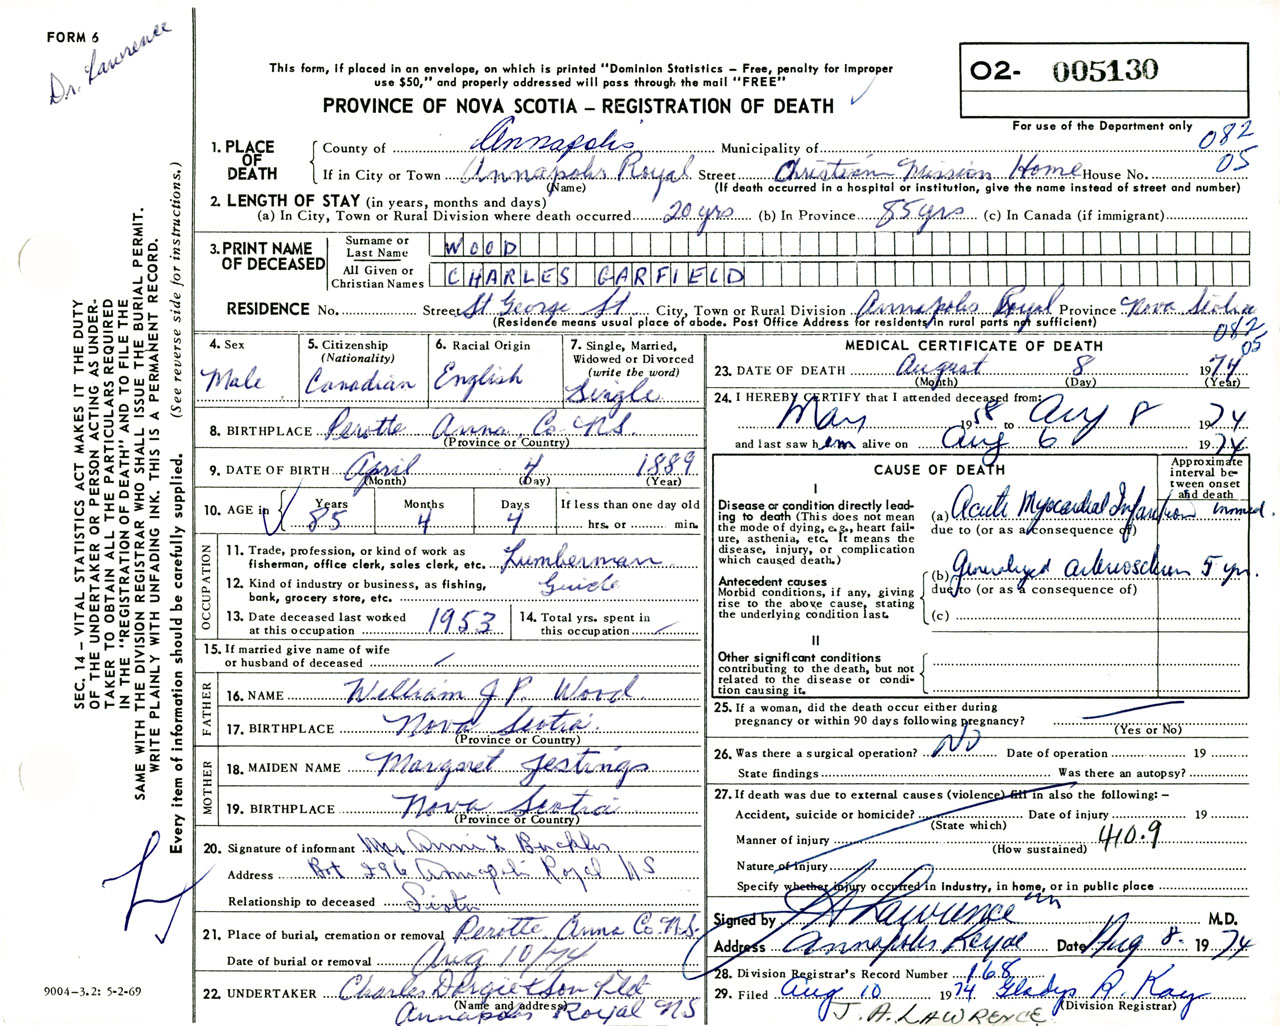 FORM 6
Dr. Lawrence
This form, if placed in an envelope, on which is printed "Dominion Statistics – Free, penalty for improper
use $50," and properly addressed will pass through the mail "FREE"
PROVINCE OF NOVA SCOTIA – REGISTRATION OF DEATH
O2- 005130
For use of the Department only
082
05
1. PLACE OF DEATH
County of Annapolis Municipality of
If in City or Town Annapolis Royal Street Christian Mission Home House No.
(Name) (If death occurred in a hospital or institution, give the name instead of street and number)
2. LENGTH OF STAY (in years, months and days)
(a) In City, Town or Rural Division where death occurred 20 yrs (b) In Province 85 yrs (c) In Canada (if immigrant)
3. PRINT NAME OF DECEASED
Surname or Last Name WOOD
All Given or Christian Names CHARLES GARFIELD
RESIDENCE No. Street St George St City, Town or Rural Division Annapolis Royal Province Nova Scotia
(Residence means usual place of abode. Post Office Address for residents in rural parts not sufficient)
082
05
4. Sex
Male
5. Citizenship
(Nationality)
Canadian
6. Racial Origin
English
7. Single, Married,
Widowed or Divorced
(write the word)
Single
8. BIRTHPLACE Perotte Anna Co NS.
(Province or Country)
9. DATE OF BIRTH April 4 1889
(Month) (Day) (Year)
10. AGE in
Years Months Days If less than one day old
85 4 4 hrs. or min.
OCCUPATION
11. Trade, profession, or kind of work as
fisherman, office clerk, sales clerk, etc. Lumberman
12. Kind of industry or business, as fishing,
bank, grocery store, etc. Guide
13. Date deceased last worked
at this occupation 1953
14. Total yrs. spent in
this occupation
15. If married give name of wife
or husband of deceased
FATHER
16. NAME William J P Wood
17. BIRTHPLACE Nova Scotia
(Province or Country)
MOTHER
18. MAIDEN NAME Margret Jestings
19. BIRTHPLACE Nova Scotia
(Province or Country)
20. Signature of informant Mrs Annie L Buckler
Address Box 296 Annapolis Royal NS
Relationship to deceased Sister
21. Place of burial, cremation or removal Perotte Anna Co. N.S.
Date of burial or removal Aug 10/74
22. UNDERTAKER Charles Dargie & Son Ltd
(Name and address)
Annapolis Royal NS
MEDICAL CERTIFICATE OF DEATH
23. DATE OF DEATH August 8 1974
(Month) (Day) (Year)
24. I HEREBY CERTIFY that I attended deceased from:
May 1958 to Aug 8 1974
and last saw hem alive on Aug 6 1974
CAUSE OF DEATH
Approximate
interval be-
tween onset
and death
I
Disease or condition directly lead-
ing to death (This does not mean
the mode of dying, e.g., heart fail-
ure, asthenia, etc. It means the
disease, injury, or complication
which caused death.)
(a) Acute Myocardial Infarction immed.
due to (or as a consequence of)
Antecedent causes
Morbid conditions, if any, giving
rise to the above cause, stating
the underlying condition last.
(b) Generalized arteriosclerosis 5 yrs.
due to (or as a consequence of)
(c)
II
Other significant conditions
contributing to the death, but not
related to the disease or condi-
tion causing it.
25. If a woman, did the death occur either during
pregnancy or within 90 days following pregnancy?
(Yes or No)
26. Was there a surgical operation? No Date of operation 19
State findings Was there an autopsy?
27. If death was due to external causes (violence) fill in also the following: –
Accident, suicide or homicide? Date of injury 19
(State which)
Manner of injury 410.9
(How sustained)
Nature of Injury
Specify whether injury occurred in industry, in home, or in public place
Signed by Lawrence M.D.
Address Annapolis Royal Date Aug 8. 1974
28. Division Registrar's Record Number 168
29. Filed Aug 10 1974 Gladys R. Kay
(Division Registrar)
J. A. LAWRENCE
SEC. 14 – VITAL STATISTICS ACT MAKES IT THE DUTY
OF THE UNDERTAKER OR PERSON ACTING AS UNDER-
TAKER TO OBTAIN ALL THE PARTICULARS REQUIRED
IN THE "REGISTRATION OF DEATH" AND TO FILE THE
SAME WITH THE DIVISION REGISTRAR WHO SHALL ISSUE THE BURIAL PERMIT.
WRITE PLAINLY WITH UNFADING INK. THIS IS A PERMANENT RECORD.
Every item of information should be carefully supplied. (See reverse side for instructions.)
9004–3.2: 5-2-69